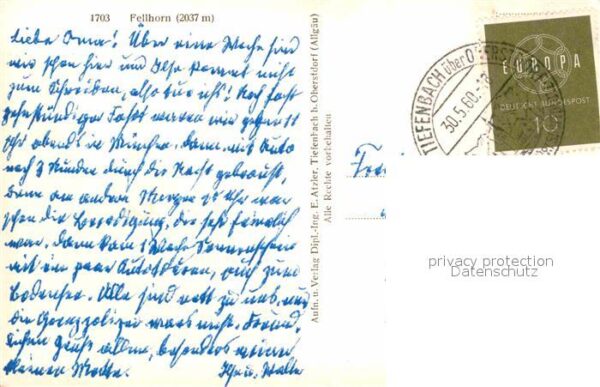 1703 Fellhorn (2037 m)
Liebe Oma! Über eine Woche sind
wir schon hier und Ilse kommt nicht
zum Schreiben, also tue ich's! Nach fast
zehnstündiger Fahrt waren wir gegen
Uhr abends in München, dann mit Auto
noch 3 Stunden durch die Nacht gebraust,
denn am andern Morgen 10 Uhr war
schon die Beerdigung, die sehr feierlich
war, dann kam 1 Woche Sonnenschein
mit ein paar Autotouren, auch zum
Bodensee. Alle sind nett zu uns, nur
die Grenzpolizei war's nicht. Freund-
lichen Gruß allen, besonders
kleinen
Walter
Aufn. u. Verlag Dipl.-Ing. E. Atzler, Tiefenbach b. Oberstdorf (Allgäu)
Alle Rechte vorbehalten
TIEFENBACH über OBERSTDORF
30.5.60
EUROPA
DEUTSCHE BUNDESPOST
10
privacy protection
Datenschutz